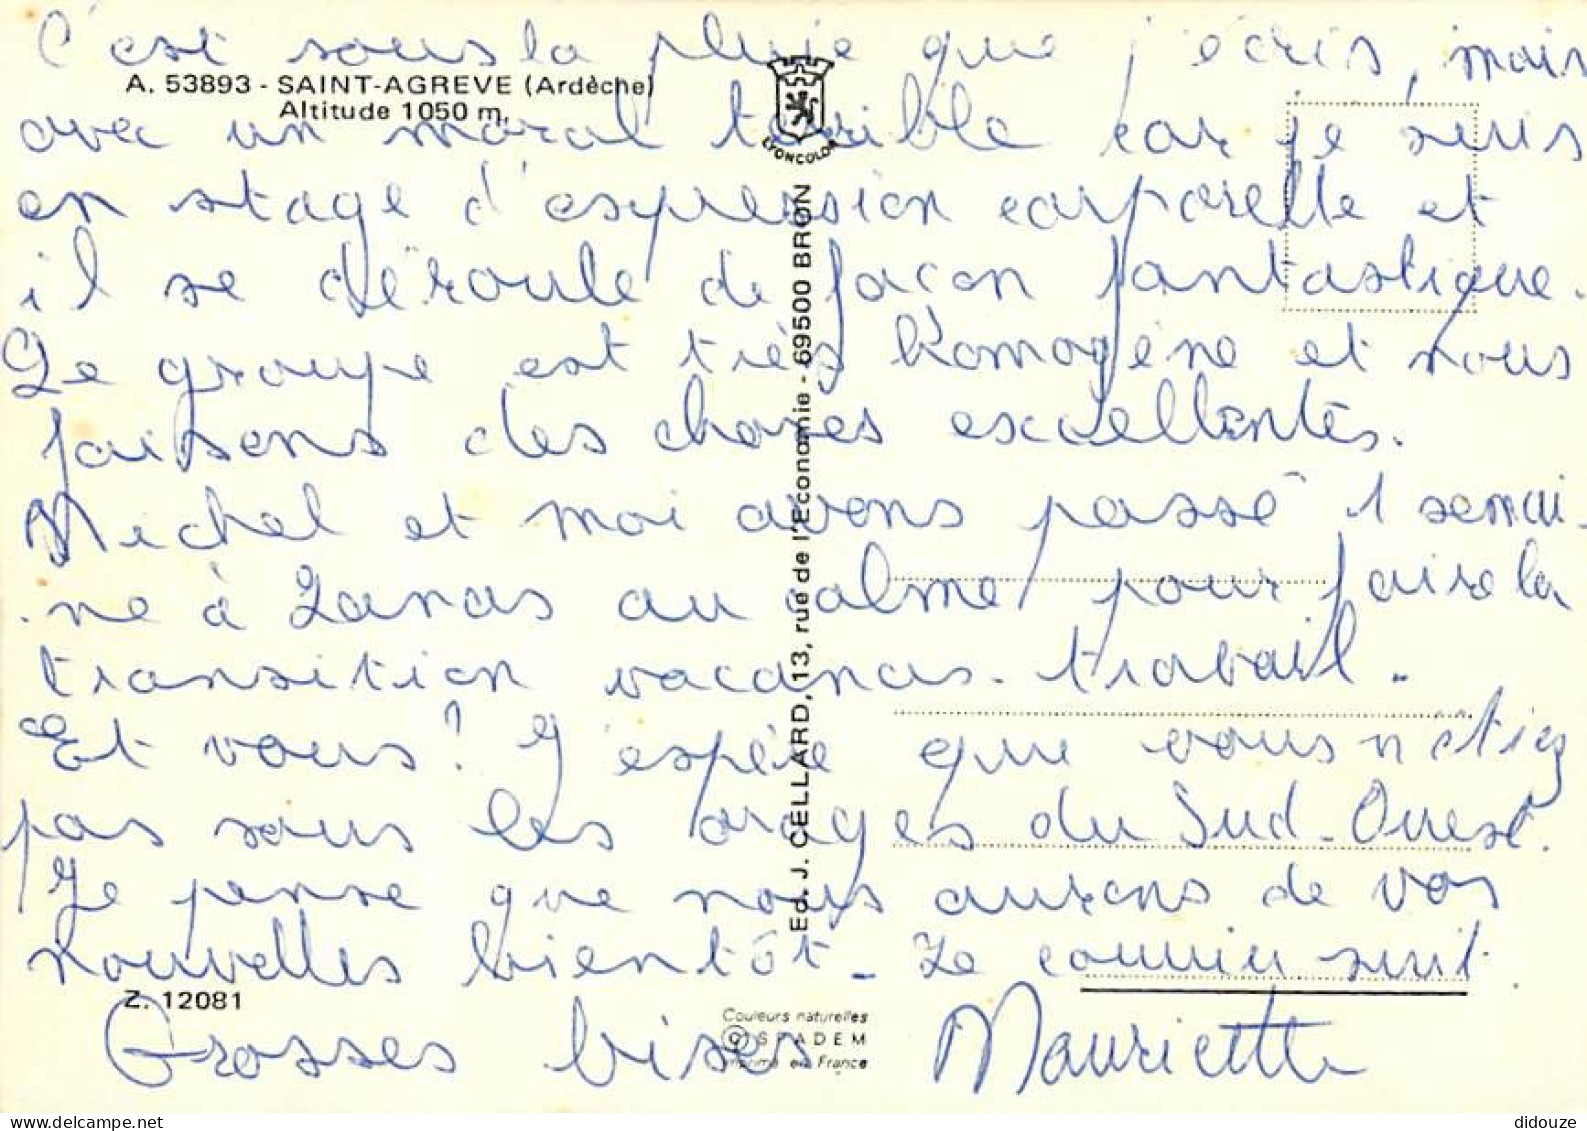 C'est sous la pluie que j'écris, mais
A. 53893 - SAINT-AGREVE (Ardèche)
Altitude 1050 m.
LYONCOLOR
avec un moral terrible car je suis
en stage d'expression corporelle et
il se déroule de façon fantastique.
Le groupe est très homogène et nous
faisons des choses excellentes.
Michel et moi avons passé 1 semai-
-ne à Lanas au calme pour faire la
transition vacances-travail.
Et vous? J'espère que vous n'étiez
pas sous les orages du Sud-Ouest.
Je pense que nous aurons de vos
nouvelles bientôt - Le courrier suit
Ed. J. CELLARD, 13, rue de l'Economie - 69500 BRON
Z. 12081
Couleurs naturelles
© SPADEM
Imprimé en France
Grosses bises Mauricette
didouze